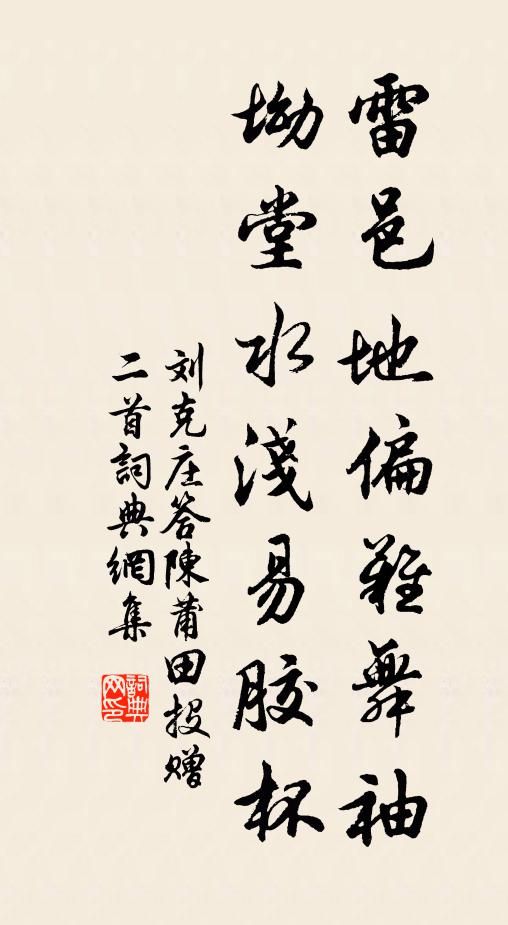 雷邑地偏難舞袖
坳堂水淺易膠杯
刘克庄答陳莆田投赠
二首詞典網集
詞典
网印